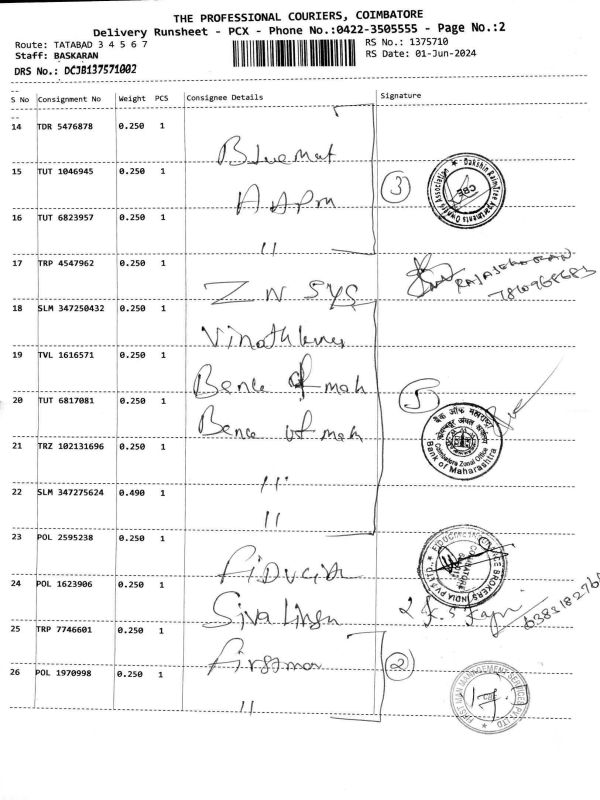 THE PROFESSIONAL COURIERS, COIMBATORE
Delivery Runsheet - PCX - Phone No.:0422-3505555 - Page No.:2
Route: TATABAD 3 4 5 6 7
RS No.: 1375710
Staff: BASKARAN
RS Date: 01-Jun-2024
DRS No.: DCJB137571002
S No Consignment No Weight PCS Consignee Details Signature
14 TDR 5476878 0.250 1
Bluemat
15 TUT 1046945 0.250 1
3
Dakshin Raintree Apartments Owners Association
CBE
16 TUT 6823957 0.250 1
"
17 TRP 4547962 0.250 1
ZN SYS
RAJASEKARAN
18 SLM 347250432 0.250 1
19 TVL 1616571 0.250 1
Bank of mah
20 TUT 6817081 0.250 1
Bank of mah
5
बैंक ऑफ महाराष्ट्र
Coimbatore Zonal Office
Bank of Maharashtra
21 TRZ 102131696 0.250 1
"
22 SLM 347275624 0.490 1
"
23 POL 2595238 0.250 1
BROKERS INDIA PVT LTD
24 POL 1623906 0.250 1
Sivalingam
25 TRP 7746601 0.250 1
Firstman
2
26 POL 1970998 0.250 1
"
FIRST MAN MANAGEMENT SERVICES PVT LTD